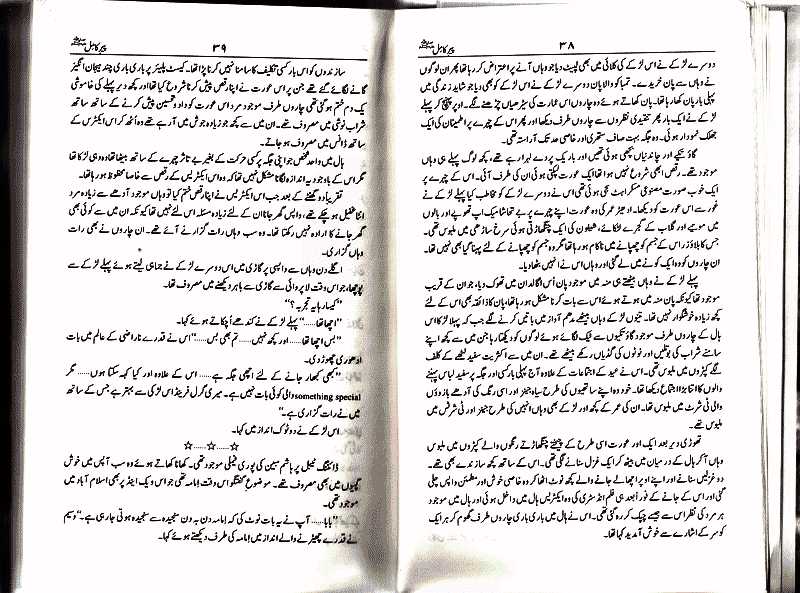 پیر کامل ﷺ
۳۸
دوسرے لڑکے نے اس لڑکے کی کلائی میں بھی لپیٹ دیا جو وہاں آنے پر اعتراض کر رہا تھا پھر ان لوگوں
نے وہاں سے پان خریدے۔ تمباکو والا پان دوسرے لڑکے نے اس لڑکے کو بھی دیا جو شاید زندگی میں
پہلی بار پان کھا رہا تھا۔ پان کھاتے ہوئے وہ چاروں اس عمارت کی سیڑھیاں چڑھنے لگے۔ اوپر پہنچ کر پہلے
لڑکے نے ایک بار پھر تنقیدی نظروں سے چاروں طرف دیکھا اور پھر اس کے چہرے پر اطمینان کی ایک
جھلک نمودار ہوئی۔ وہ جگہ بہت صاف ستھری اور خاصی حد تک آراستہ تھی۔
گاؤ تکیے اور چاندنیاں بچھی ہوئی تھیں اور باریک پردے لہرا رہے تھے، کچھ لوگ پہلے ہی وہاں
موجود تھے۔ رقص ابھی شروع نہیں ہوا تھا ایک عورت لپکتی ہوئی ان کی طرف آئی۔ اس کے چہرے پر
ایک خوب صورت مصنوعی مسکراہٹ سجی ہوئی تھی اس نے دوسرے لڑکے کو مخاطب کیا پہلے لڑکے نے
غور سے اس عورت کو دیکھا۔ ادھیڑ عمر کی وہ عورت اپنے چہرے پر بے تحاشا میک اپ تھوپے اور بالوں
میں موتیے اور گلاب کے گجرے لٹکائے، شیفون کی ایک چنگھاڑتی ہوئی سرخ ساڑھی میں ملبوس تھی۔
جس کا بلاؤز اس کے جسم کو چھپانے میں ناکام ہو رہا تھا مگر وہ جسم کو چھپانے کے لئے پہنا گیا بھی نہیں تھا۔
ان چاروں کو وہ ایک کونے میں لے گئی اور وہاں اس نے انہیں بٹھا دیا۔
پہلے لڑکے نے وہاں بیٹھتے ہی منہ میں موجود پان اُس اگالدان میں تھوک دیا، جو ان کے قریب
موجود تھا کیونکہ پان منہ میں ہوتے ہوئے اس سے بات کرنا مشکل ہو رہا تھا، پان کا ذائقہ بھی اس کے لئے
کچھ زیادہ خوشگوار نہیں تھا۔ تینوں لڑکے وہاں بیٹھے مدھم آواز میں باتیں کرنے لگے جب کہ پہلا لڑکا اس
ہال کے چاروں طرف موجود گاؤ تکیوں سے ٹیک لگائے ہوئے لوگوں کو دیکھتا رہا جن میں سے کچھ اپنے
سامنے شراب کی بوتلیں اور نوٹوں کی گڈیاں رکھے بیٹھے تھے۔ ان میں سے اکثریت سفید لٹھے کے کلف
لگے کپڑوں میں ملبوس تھی۔ اس نے عید کے اجتماعات کے علاوہ آج پہلی بار کسی اور جگہ پر سفید لباس پہننے
والوں کا اتنا بڑا اجتماع دیکھا تھا۔ خود وہ اپنے ساتھیوں کی طرح سیاہ جینز اور اسی رنگ کی آدھے بازوؤں
والی ٹی شرٹ میں ملبوس تھا۔ ان کی عمر کے کچھ اور لڑکے بھی وہاں انہیں کی طرح جینز اور ٹی شرٹس میں
ملبوس تھے۔
تھوڑی دیر بعد ایک اور عورت اسی طرح کے چیختے چنگھاڑتے رنگوں والے کپڑوں میں ملبوس
وہاں آ کر ہال کے درمیان میں بیٹھ کر ایک غزل سنانے لگی تھی۔ اس کے ساتھ کچھ سازندے بھی تھے۔
دو غزلیں سنانے اور اپنے اوپر اچھالے جانے والے کچھ نوٹ اٹھا کر وہ خاصی خوش اور مطمئن واپس چلی
گئی اور اس کے جانے کے فوراً بعد ہی فلم انڈسٹری کی وہ ایکٹریس ہال میں داخل ہوئی اور ہال میں موجود
ہر مرد کی نظر اس سے جیسے چپک کر رہ گئی تھی۔ اس نے ہال میں باری باری چاروں طرف گھوم کر ہر ایک
کو سر کے اشارے سے خوش آمدید کہا تھا۔
پیر کامل ﷺ
۳۹
سازندوں کو اس بار کسی تکلیف کا سامنا نہیں کرنا پڑا تھا۔ کیسٹ پلیئر پر باری باری چند ہیجان انگیز
گانے لگائے گئے تھے جن پر اس عورت نے اپنا رقص پیش کرنا شروع کیا تھا اور کچھ دیر پہلے کی خاموشی
یک دم ختم ہو گئی تھی چاروں طرف موجود مرد اس عورت کو داد و تحسین پیش کرنے کے ساتھ ساتھ
شراب نوشی میں مصروف تھے۔ ان میں سے کچھ جو زیادہ جوش میں آ رہے تھے وہ اُٹھ کر اس ایکٹرس کے
ساتھ ڈانس میں مصروف ہو جاتے۔
ہال میں واحد شخص جو اپنی جگہ پر کسی حرکت کے بغیر بے تاثر چہرے کے ساتھ بیٹھا تھا وہ وہی لڑکا تھا
مگر اس کے باوجود یہ اندازہ لگانا مشکل نہیں تھا کہ وہ اس ایکٹریس کے رقص سے خاصا محظوظ ہو رہا تھا۔
تقریباً دو گھنٹے کے بعد جب اس ایکٹریس نے اپنا رقص ختم کیا تو وہاں موجود آدھے سے زیادہ مرد
انٹا غفیل ہو چکے تھے، واپس گھر جانا ان کے لئے زیادہ مسئلہ اس لئے نہیں تھا کیونکہ ان میں سے کوئی بھی
گھر جانے کا ارادہ نہیں رکھتا تھا۔ وہ سب وہاں رات گزارنے آئے تھے۔ ان چاروں نے بھی رات
وہاں گزاری۔
اگلے دن وہاں سے واپسی پر گاڑی میں اس دوسرے لڑکے نے جماہی لیتے ہوئے پہلے لڑکے سے
پوچھا، جو اس وقت لا پروائی سے گاڑی سے باہر دیکھنے میں مصروف تھا۔
”کیسا رہا یہ تجربہ؟“
”اچھا تھا……“ پہلے لڑکے نے کندھے اُچکاتے ہوئے کہا۔
”بس اچھا تھا…… اور کچھ نہیں…… تم بھی بس……“ اس نے قدرے ناراضی کے عالم میں بات
ادھوری چھوڑ دی۔
”کبھی کبھار جانے کے لئے اچھی جگہ ہے…… اس کے علاوہ اور کیا کہہ سکتا ہوں…… مگر
something special والی کوئی بات نہیں ہے۔ میری گرل فرینڈ اس لڑکی سے بہتر ہے جس کے ساتھ
میں نے رات گزاری ہے۔“
اس لڑکے نے دو ٹوک انداز میں کہا۔
☆……☆……☆
ڈائننگ ٹیبل پر ہاشم مبین کی پوری فیملی موجود تھی۔ کھانا کھاتے ہوئے وہ سب آپس میں خوش
گپیوں میں بھی مصروف تھے۔ موضوعِ گفتگو اس وقت امامہ تھی جو اس ویک اینڈ پر بھی اسلام آباد میں
موجود تھی۔
”بابا…… آپ نے یہ بات نوٹ کی کہ امامہ دن بہ دن سنجیدہ سے سنجیدہ ہوتی جا رہی ہے۔“ وسیم
نے قدرے چھیڑنے والے انداز میں امامہ کی طرف دیکھتے ہوئے کہا۔